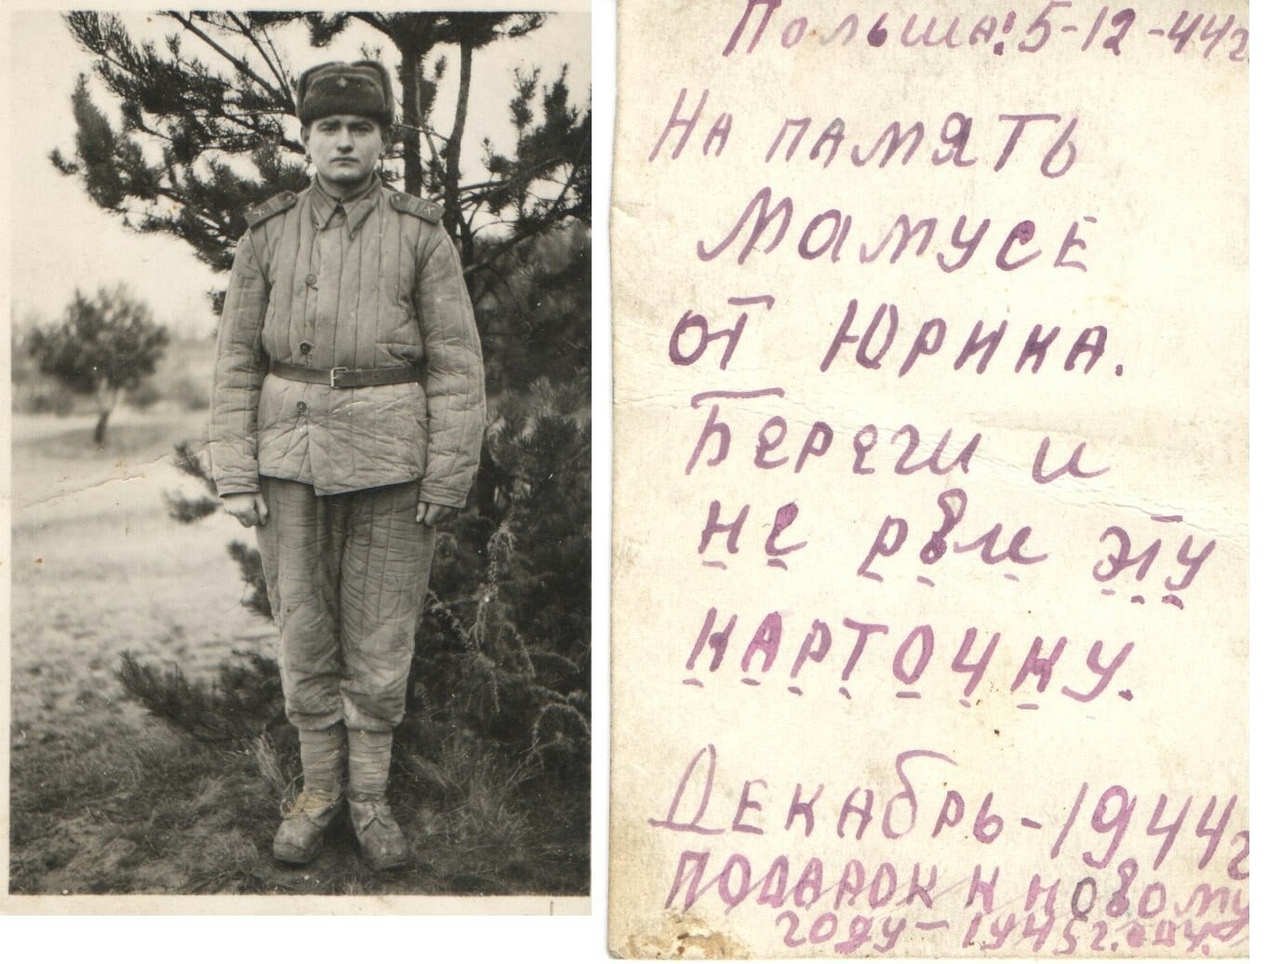 Польша! 5-12-44г.
На память
Мамусе
от Юрика.
Береги и
не рви эту
карточку.
Декабрь-1944г
подарок к новому
году-1945г.